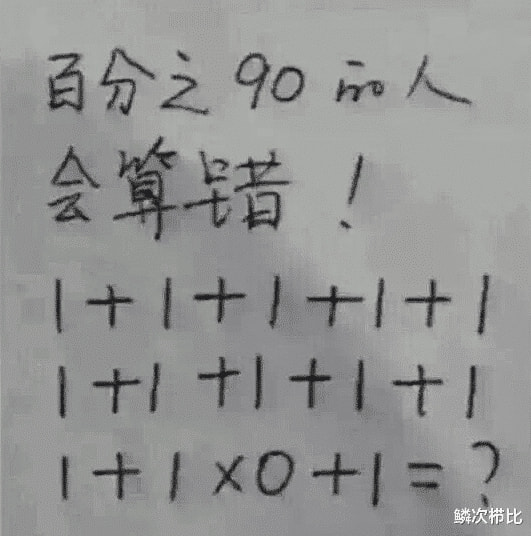 百分之90的人
会算错！
1+1+1+1+1
1+1+1+1+1
1+1×0+1=?
鳞次栉比